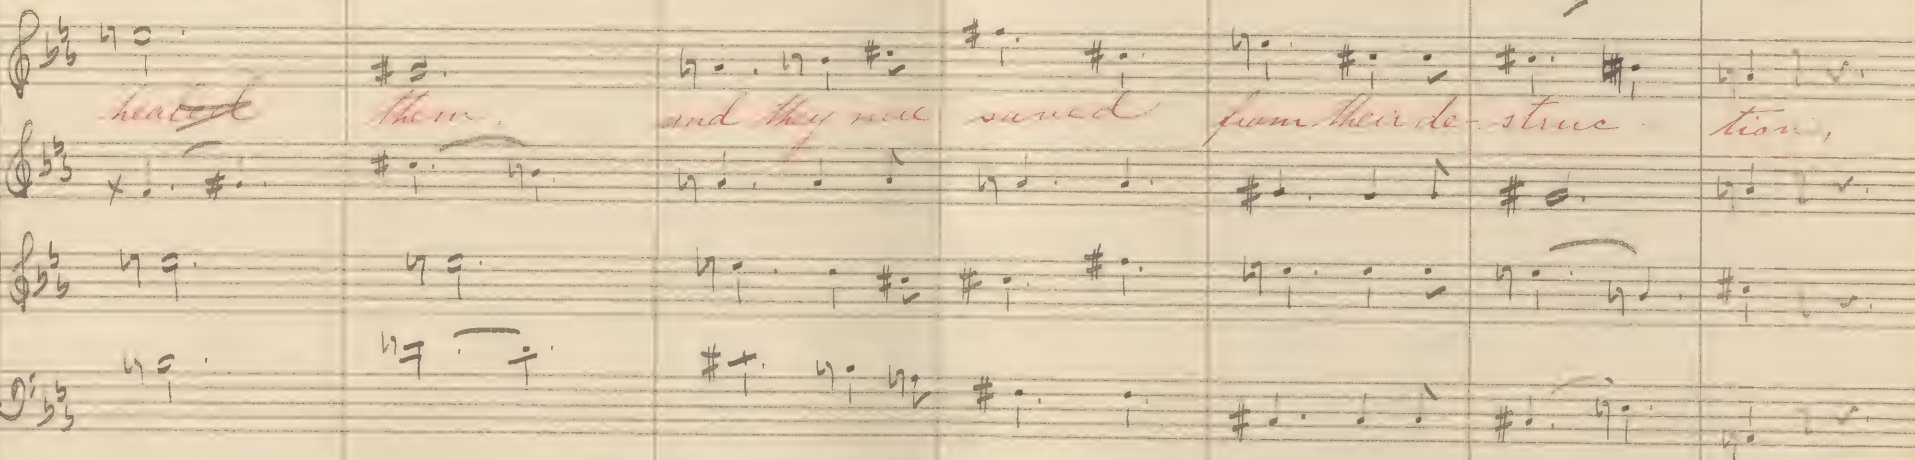 healed them. and they were saved from their de- struc - tion,